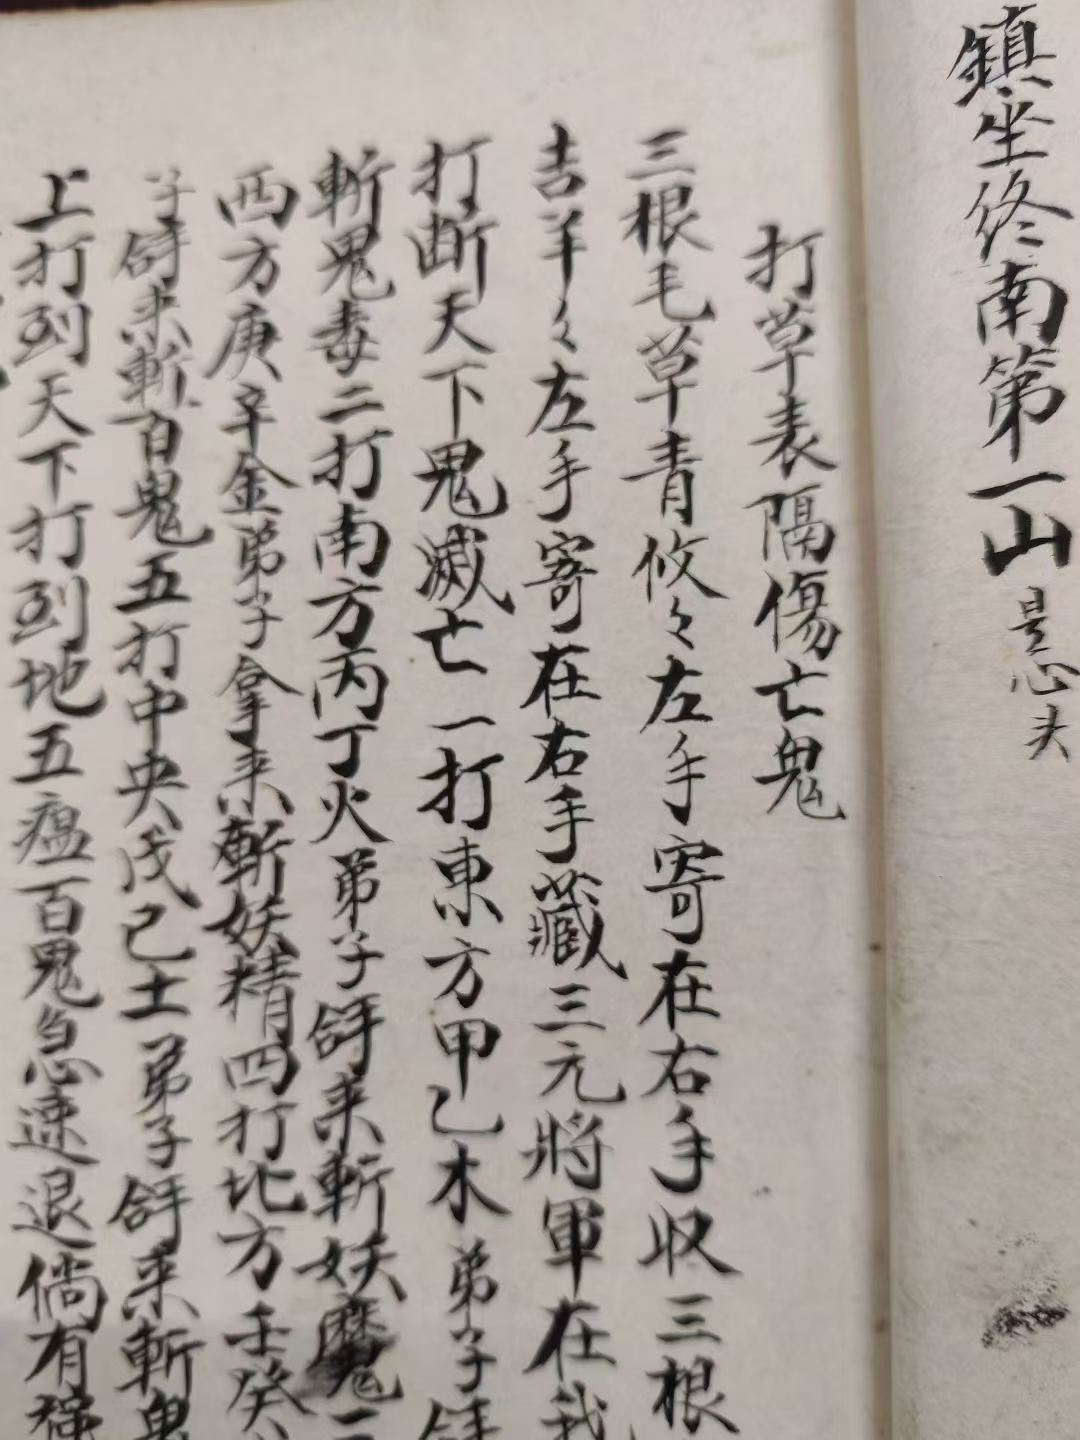 鎮坐終南第一山是心头
打草表隔傷亡鬼
三根毛草青攸々左手寄在右手収三根
吉羊々左手寄在右手藏三元將軍在我
打断天下鬼滅亡一打東方甲乙木弟子
斬鬼毒二打南方丙丁火弟子𢪔来斬妖魔二
西方庚辛金弟子拿来斬妖精四打北方壬癸
子𢪔来斬百鬼五打中央戊己土弟子𢪔来斬鬼
上打到天下打到地五瘟百鬼急速退倘有